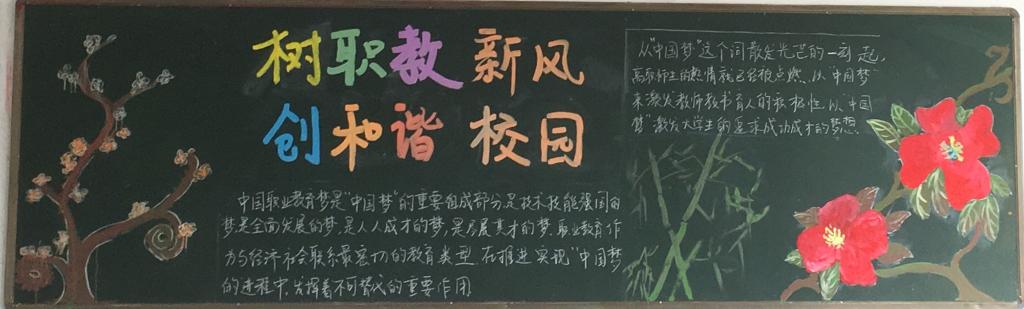 树职教 新风
创和谐 校园
中国职业教育梦是"中国梦"的重要组成部分是技术技能强国的
梦是全面发展的梦,是人人成才的梦,是尽展其才的梦.职业教育作
为与经济社会联系最密切的教育类型,在推进实现"中国梦"
的进程中,发挥着不可替代的重要作用
从"中国梦"这个词散发光芒的一刻起,
高职师生的热情就已经被点燃.以"中国梦"
来激发教师教书育人的积极性,以"中国
梦"激发大学生的追求成功成才的梦想.